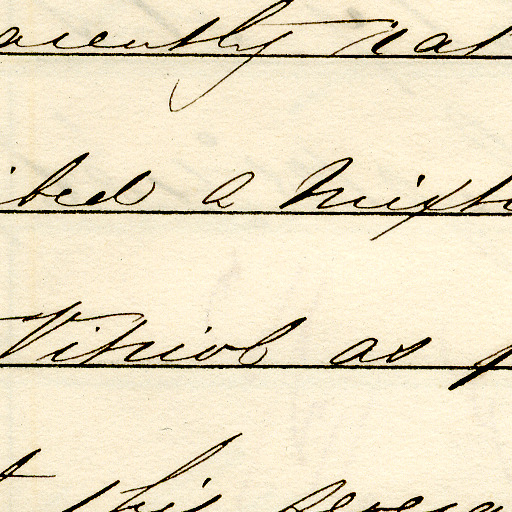 arently nat
ibed a mixtu
Vitriol as p
t this